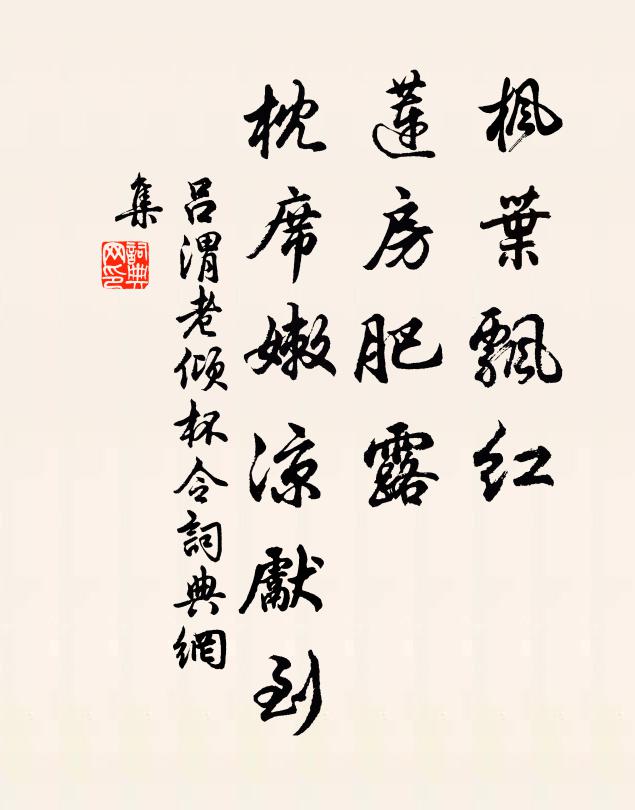 楓葉飄紅
蓮房肥露
枕席嫩涼獻到
呂渭老傾杯令詞典網
集
詞典网印